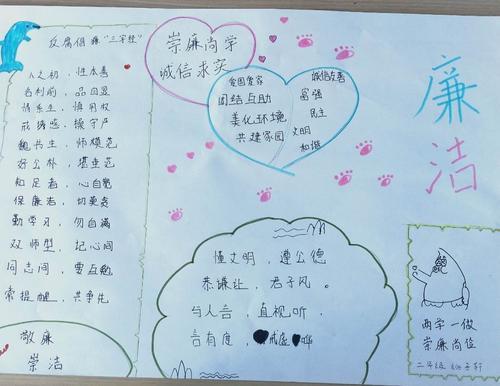 反腐倡廉“三字经”
人之初，性本善
名利前，品自显
情系生，慎用权
戒诱惑，操守严
为公朴，堪垂范
知足者，心自宽
保廉者，切莫贪
勤学习，勿自满
双师型，记心间
同志间，要互勉
常提醒，共争先
敬廉
崇洁
崇廉尚学
诚信求实
爱国爱家
团结互助
美化环境
共建家园
诚信友善
富强
民主
文明
和谐
廉
洁
懂文明，遵公德
恭谦让，君子风。
与人言，直视听，
言有度，戒喧哗
两学一做
崇廉尚位
二年级